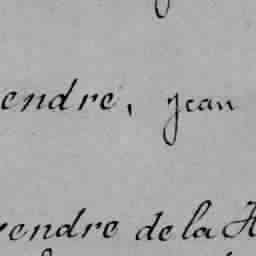 endre, Jean
endre de la